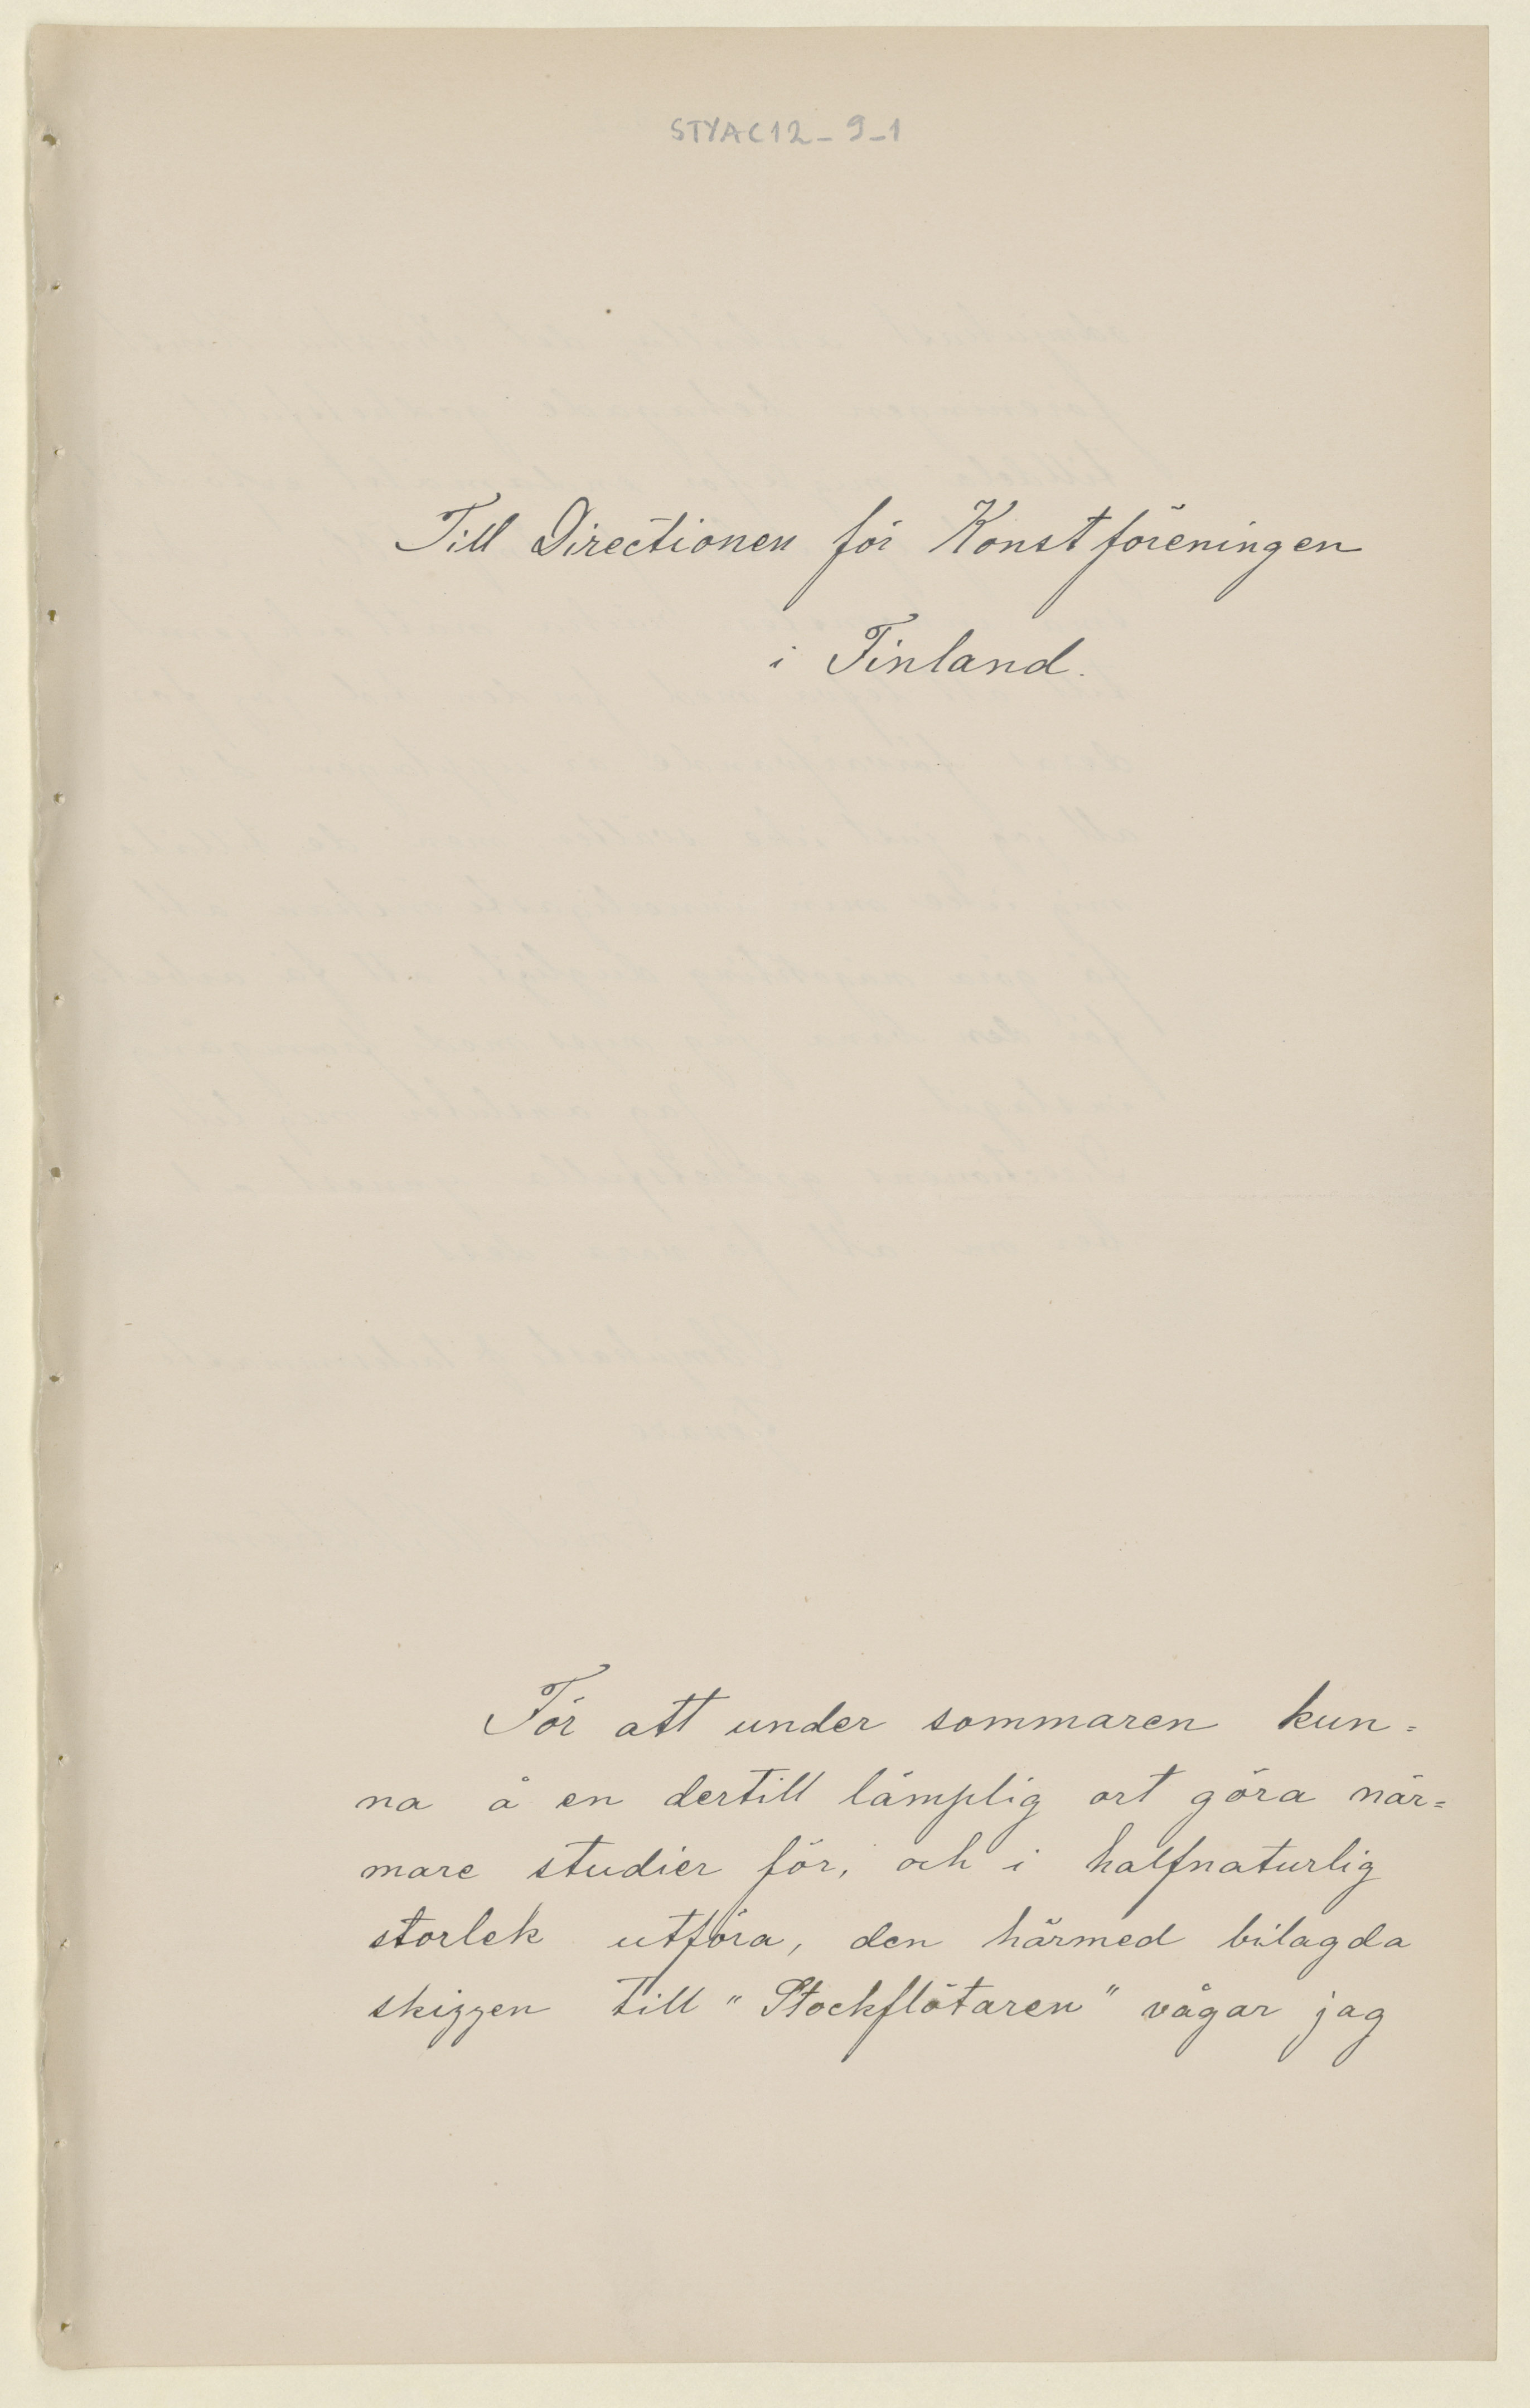 STYAC12_9_1
Till Directionen för Konstföreningen
i Finland.
För att under sommaren kun=
na å en dertill lämplig ort göra när=
mare studier för, och i halfnaturlig
storlek utföra, den härmed bilagda
skizzen till "Stockflötaren" vågar jag